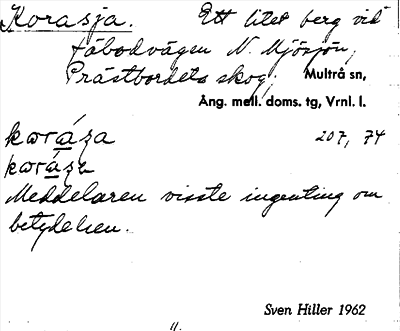 Korasja. Ett litet berg vid
fäbodvägen N. Mjösjön,
Prästbordets skog, Multrå sn,
Ång. mell. doms. tg, Vrnl. l.
207, 74
Meddelaren visste ingenting om
betydelsen.
Sven Hiller 1962